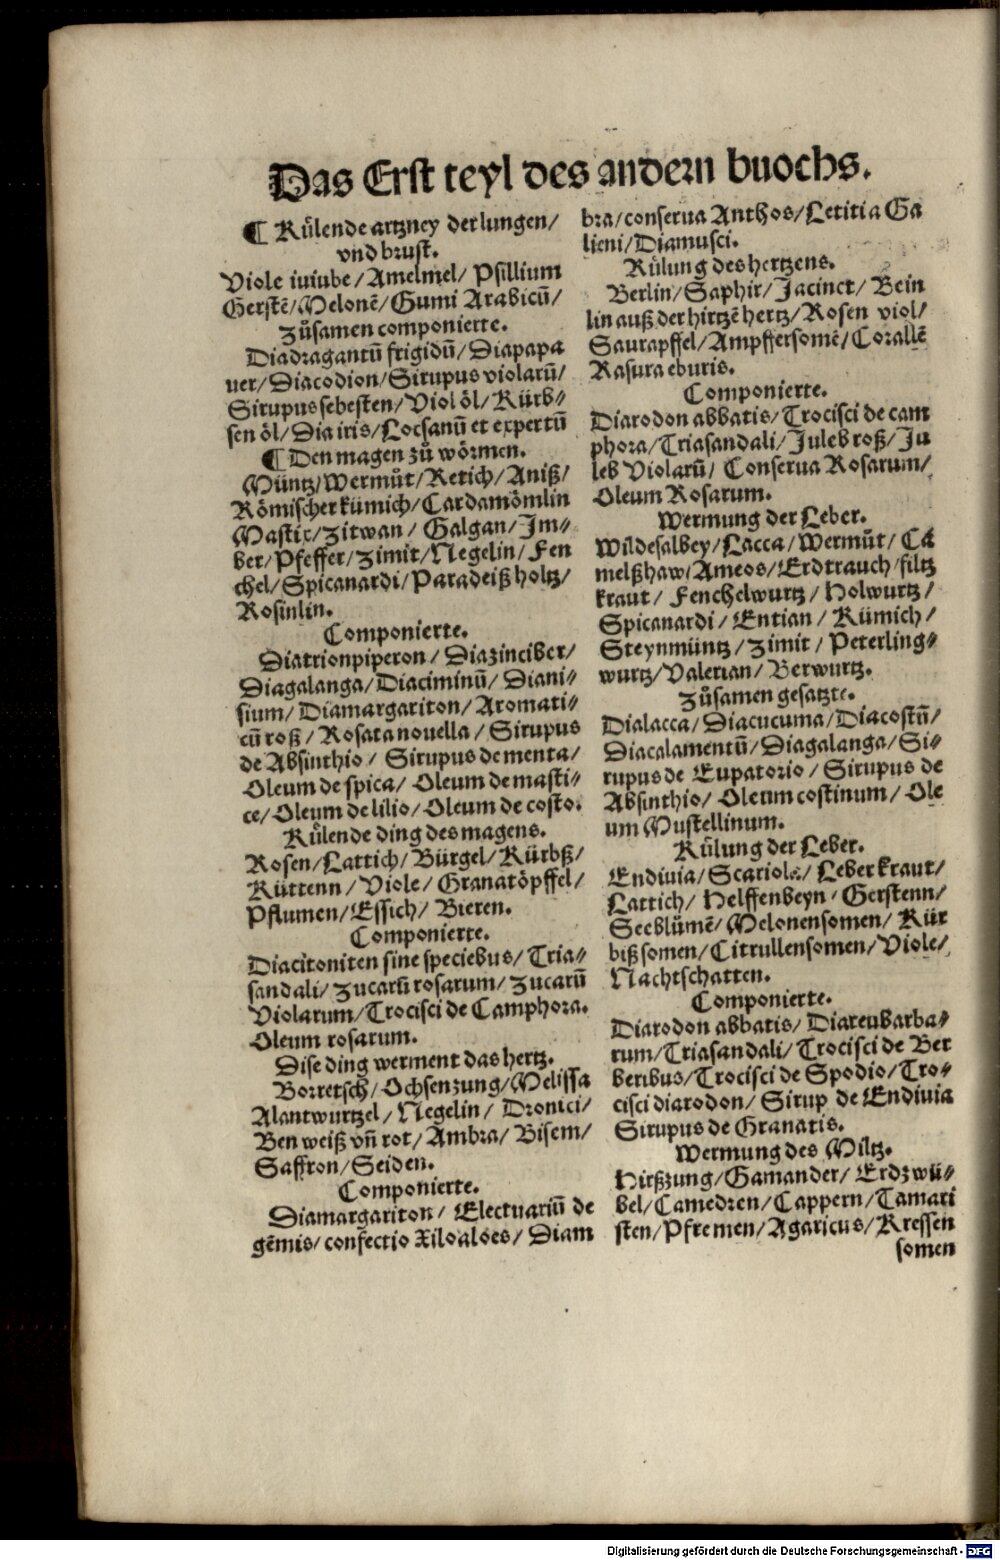 Das Erst teyl des andern buochs.
¶ Kuͤlende artzney der lungen/
vnd brust.
Viole iuiube/Amelmel/Psillium
Gerstẽ/Melonẽ/Gumi Arabicũ/
Zuͦsamen componierte.
Diadragantũ frigidũ/Diapapa
uer/Diacodion/Sirupus violarũ/
Sirupus sebesten/Viol oͤl/Kürb⸗
sen oͤl/Dia iris/Locsanũ et expertũ
¶ Den magen zuͦ woͤrmen.
Müntz/Wermuͦt/Retich/Aniß/
Roͤmischer kümich/Cardamoͤmlin
Mastix/Zitwan/Galgan/Im⸗
ber/Pfeffer/Zimit/Negelin/Fen
chel/Spicanardi/Paradeiß holtz/
Rosinlin.
Componierte.
Diatrionpiperon/Diazinciber/
Diagalanga/Diaciminũ/Diani⸗
sium/Diamargariton/Aromati⸗
cũ roß/Rosata nouella/Sirupus
de Absinthio/Sirupus de menta/
Oleum de spica/Oleum de masti⸗
ce/Oleum de lilio/Oleum de costo.
Kuͤlende ding des magens.
Rosen/Lattich/Bürgel/Kürbß/
Küttenn/Viole/Granatoͤpffel/
Pflumen/Essich/Bieren.
Componierte.
Diacitoniten sine speciebus/Tria⸗
sandali/Zucarũ rosarum/Zucarũ
Violarum/Trocisci de Camphora.
Oleum rosarum.
Dise ding werment das hertz.
Borretsch/Ochsenzung/Melissa
Alantwurtzel/Negelin/Dronici/
Ben weiß vñ rot/Ambra/Bisem/
Saffron/Seiden.
Componierte.
Diamargariton/Electuariũ de
gẽmis/confectio Xiloaloes/Diam
bra/conserua Anthos/Letitia Ga
lieni/Diamusci.
Kuͤlung des hertzens.
Berlin/Saphir/Jacinct/Bein
lin auß der hirtzẽ hertz/Rosen viol/
Saurapffel/Ampffersomẽ/Corallẽ
Rasura eburis.
Componierte.
Diarodon abbatis/Trocisci de cam
phora/Triasandali/Juleb roß/Ju
leb Violarũ/Conserua Rosarum/
Oleum Rosarum.
Wermung der Leber.
Wildesalbey/Lacca/Wermuͦt/Ca
melßhaw/Ameos/Erdtrauch/filtz
kraut/Fenchelwurtz/Holwurtz/
Spicanardi/Entian/Kümich/
Steynmüntz/Zimit/Peterling⸗
wurtz/Valerian/Berwurtz.
Zuͦsamen gesatzte.
Dialacca/Diacucuma/Diacostũ/
Diacalamentũ/Diagalanga/Si⸗
rupus de Eupatorio/Sirupus de
Absinthio/Oleum costinum/Ole
um Mustellinum.
Kuͤlung der Leber.
Endiuia/Scariole/Leberkraut/
Lattich/Helffenbeyn/Gerstenn/
Seeblümẽ/Melonensomen/Kür
bißsomen/Citrullensomen/Viole/
Nachtschatten.
Componierte.
Diarodon abbatis/Diareubarba⸗
rum/Triasandali/Trocisci de Ber
beribus/Trocisci de Spodio/Tro⸗
cisci diarodon/Sirup de Endiuia
Sirupus de Granatis.
Wermung des Miltz.
Hirßzung/Gamander/Erdzwü⸗
bel/Camedren/Cappern/Tamari
sten/Pfremen/Agaricus/Kressen
somen
Digitalisierung gefördert durch die Deutsche Forschungsgemeinschaft - DFG